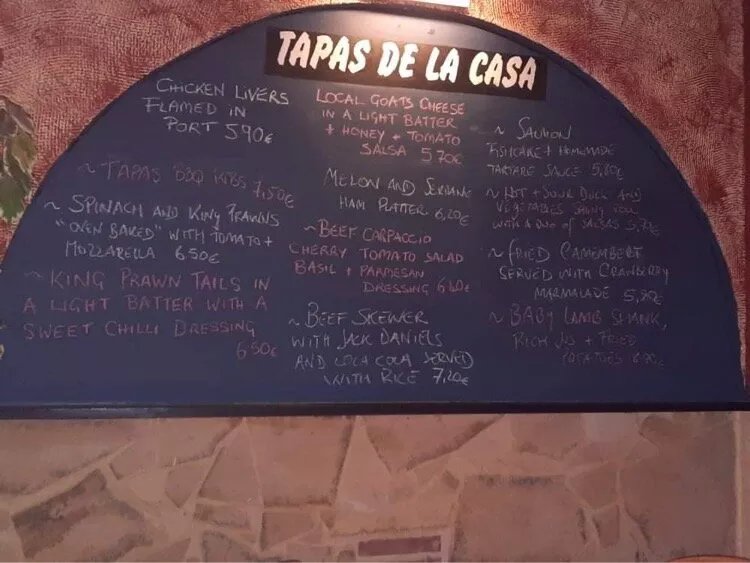 TAPAS DE LA CASA
CHICKEN LIVERS
FLAMED IN
PORT 5.90€
~ TAPAS BBQ RIBS 7,50€
~ SPINACH AND KING PRAWNS
"OVEN BAKED" WITH TOMATO +
MOZZARELLA 6.50€
~ KING PRAWN TAILS IN
A LIGHT BATTER WITH A
SWEET CHILLI DRESSING
6.50€
LOCAL GOATS CHEESE
IN A LIGHT BATTER
+ HONEY + TOMATO
SALSA 5.70€
MELON AND SERRANO
HAM PLATTER 6,20€
~ BEEF CARPACCIO
CHERRY TOMATO SALAD
BASIL + PARMESAN
DRESSING
~ BEEF SKEWER
WITH JACK DANIELS
AND COCA COLA SERVED
WITH RICE 7,20€
~ SALMON
FISHCAKE + HOMEMADE
TARTARE SAUCE 5,80€
~ HOT + SOUR DUCK AND
VEGETABLES
WITH A DUO OF SALSAS
~ FRIED CAMEMBERT
SERVED WITH CRANBERRY
MARMALADE 5,90€
~ BABY LAMB SHANK,
RICH JUS + FRIED
POTATOES